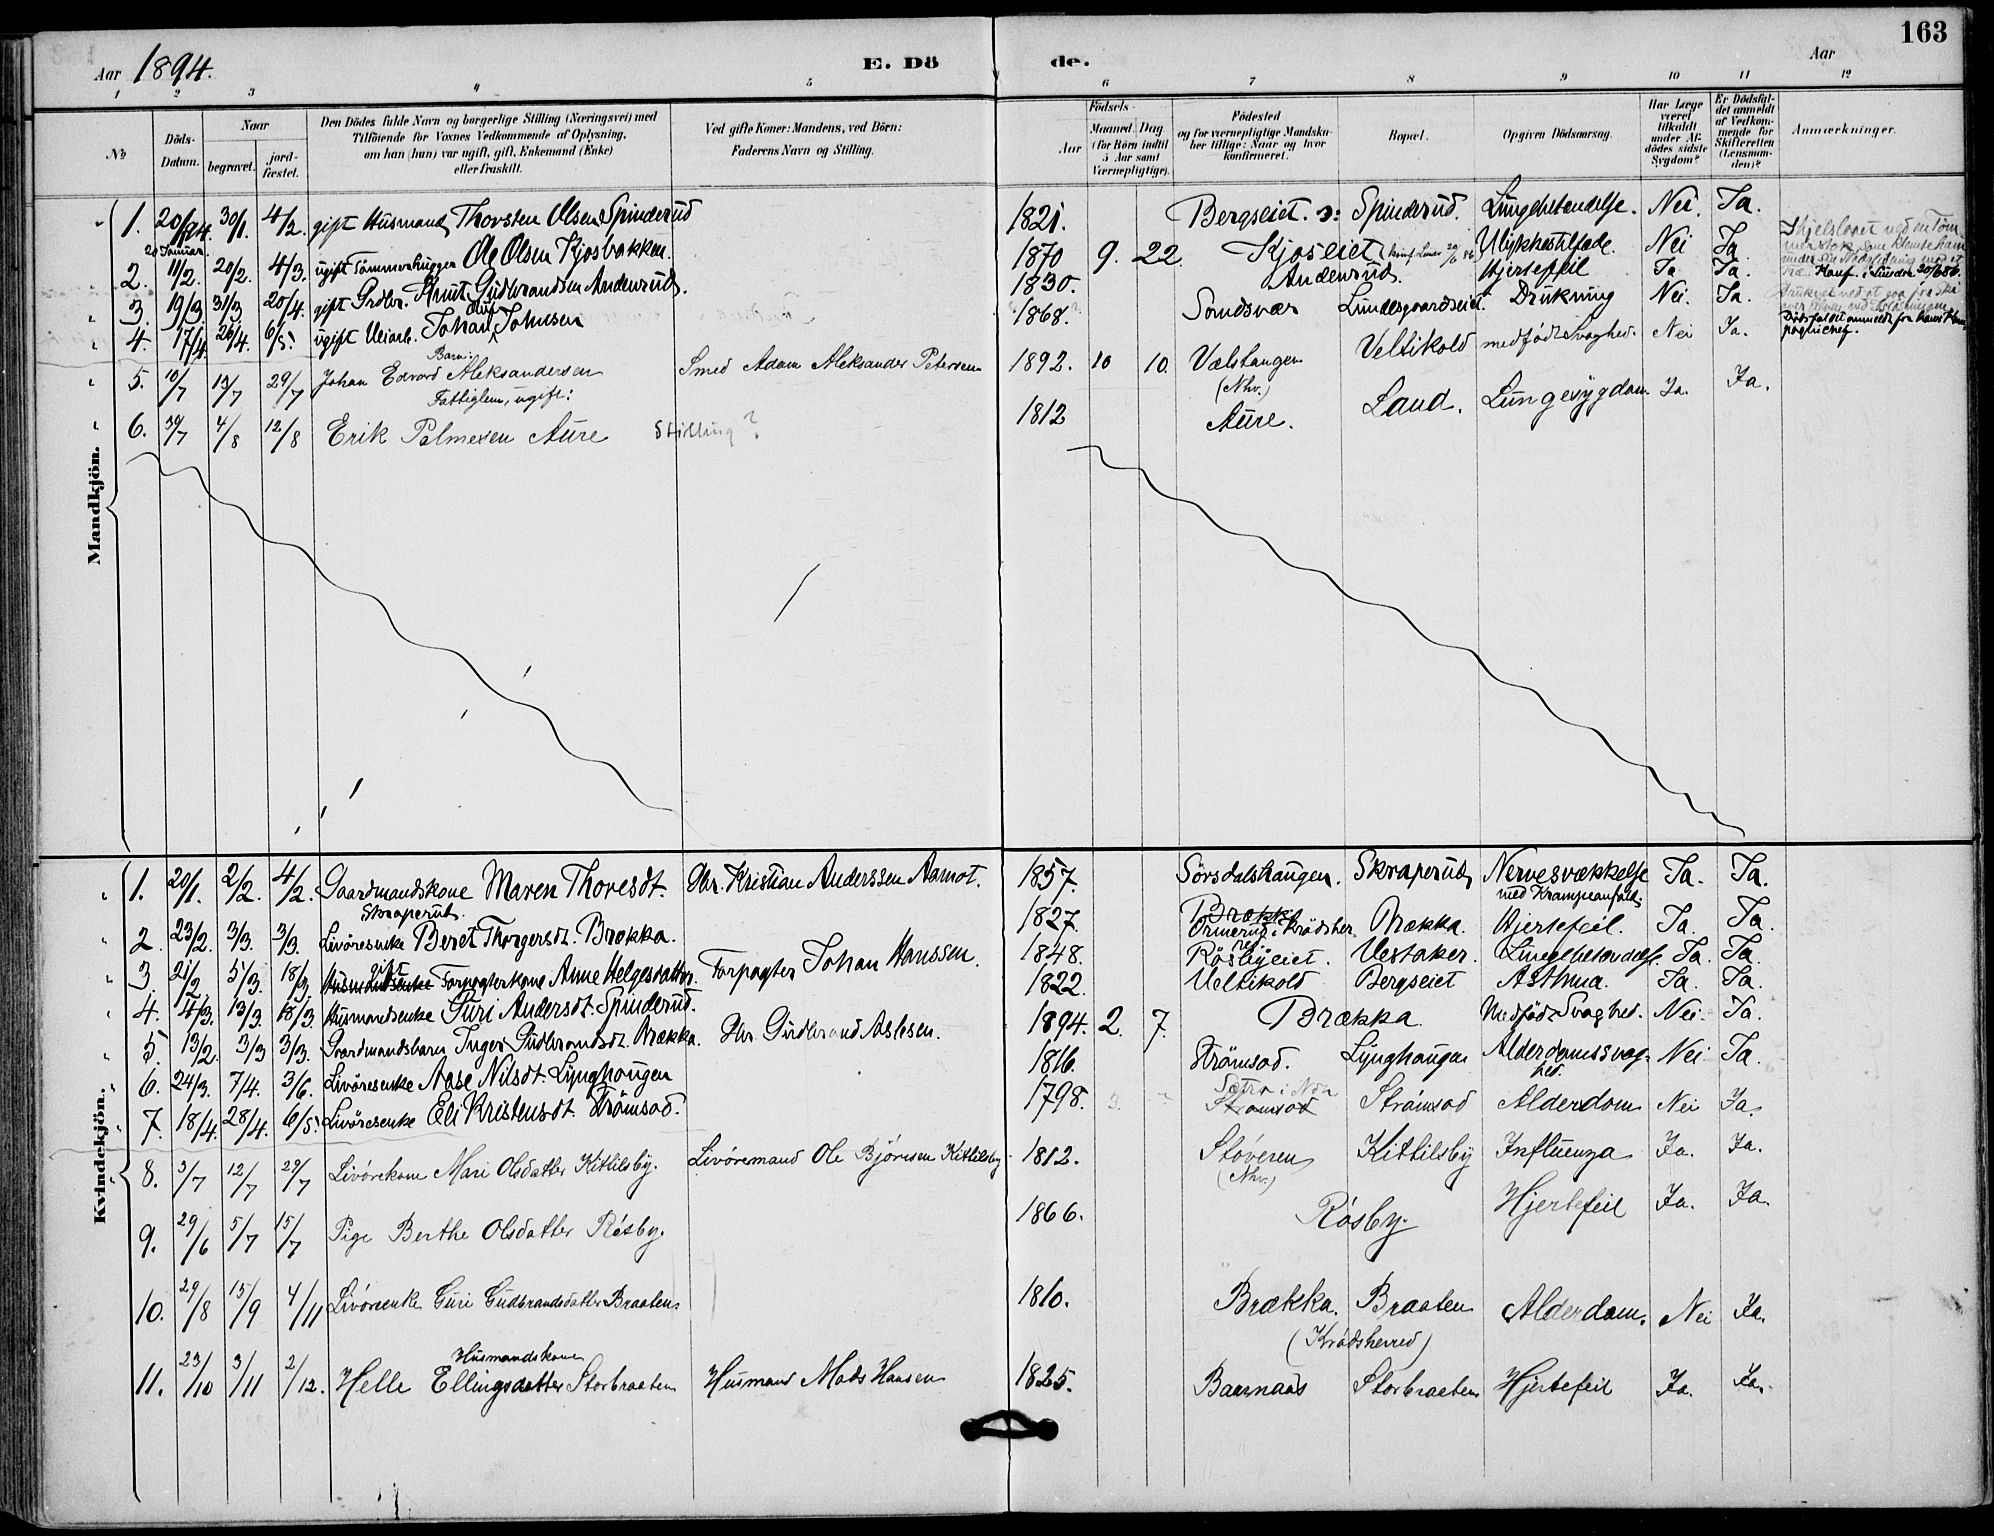 163
Aar 1894.
E. Dö de.
Aar
1 2 3 4 5 6 7 8 9 10 11 12
No
Döds-Datum.
Naar
begravet.
jord-fæstet.
Den Dödes fulde Navn og borgerlige Stilling (Næringsvei) med
Tilföiende for Voxnes Vedkommende af Oplysning,
om han (hun) var ugift, gift, Enkemand (Enke)
eller fraskilt.
Ved gifte Koner: Mandens, ved Börn:
Faderens Navn og Stilling.
Födsels-
Aar
Maaned. Dag
(for Börn indtil
5 Aar samt
Værnepligtige).
Födested
og for værnepligtige Mandskaber tillige: Naar og hvor
konfirmeret.
Bopæl.
Opgiven Dödsaarsag.
Har Læge
været
tilkaldt
under Afdödes sidste
Sygdom?
Er Dödsfaldet anmeldt
af Vedkommende for
Skifteretten
(Lensmanden)?
Anmærkninger.
Mandkjön.
1. 20/1 94. 30/1. 4/2. gift Husmand Thorsten Olsen Spinderud 1821. Bergseiet. Spinderud. Lungebetændelse. Nei. Ja.
20 Januar
2. 11/2. 20/2. 4/3. ugift Tömmerhugger Ole Olsen Kjosbakken. 1870 9. 22. Kjoseiet Ulykkestilfælde. Nei Ja
Konf. i Sigdal 20/6 86.
3. 19/3. 31/3 20/4. gift Grdbr. Knut Gudbrandsen Andersrud. 1830. Andersrud. Hjertefeil Ja Ja.
4. 17/4. 26/4. 6/5. ugift Veiarb. Johan Johnsen 1868. Sandsvær Lundesgaardseiet. Drukning Nei. Ja.
Dödsfaldet anmeldt fra
Barn:
5. 10/7 19/7 29/7 Johan Edvard Aleksandersen Smed Adam Aleksander Petersen 1892. 10 10. Vælstangen (Nhr.) Veltikold medfödt Svaghed. Nei Ja.
Fattiglem, ugift:
6. 30/7 4/8 12/8 Erik Palmesen Aure Stilling? 1812 Aure. Laud. Lungesygdom Ja. Ja.
Kvindekjön.
1. 20/1. 2/2. 4/2. Gaardmandskone Maren Thoresdt. Gbr. Kristian Anderssen Aamot. 1857. Sörsdalshaugen. Skraperud Nervesvækkelse med Krampeanfald. Ja. Ja.
Skraperud.
2. 23/2. 3/3. 3/3. Livöresenke Beret Thorgersdt. Brækka. 1827. Brække Ormerud i Krödsher red. Brækka. Hjertefeil. Ja. Ja
3. 21/2 5/3. 18/3. Husmandsenke gift Forpagterkone Anne Helgesdatter. Forpagter Johan Hanssen. 1848. Rösbyeiet. Vestaker. Lungebetændelse. Ja. Ja.
4. 4/3. 13/3. 18/3. Husmandsenke Guri Andersdt. Spinderud. 1822. Veltikold Bergseiet Asthma. Ja. Ja.
5. 13/2. 3/3 3/3. Gaardmandsbarn Inger Gudbrandsdt. Brækka. Gbr. Gudbrand Aslesen. 1894. 2. 7. Brækka. Medfödt Svaghed. Nei. Ja.
6. 24/3. 7/4. 3/6. Livöresenke Aase Nilsdt. Lynghaugen 1816. Strömsod. Lynghaugen Alderdomssvaghed. Nei Ja.
7. 18/4. 28/4. 6/5. Livöresenke Eli Kristensdt. Strömsod. 1798. Sætra i Nor Strömsod Strömsod Alderdom Nei Ja.
8. 3/7 12/7 29/7 Livörekone Mari Olsdatter Kittilsby. Livöremand Ole Björnsen Kittilsby 1812. Stöveren (Nhr.) Kittilsby Influenza Ja. Ja.
9. 29/6 5/7 15/7 Pige Berthe Olsdatter Rösby. 1866. Rösby. Hjertefeil Ja. Ja
10. 29/8 15/9 4/11 Livörsenke Guri Gudbrandsdatter Braaten 1810. Brækka. (Krödsherred) Braaten Alderdom. Nei Ja.
Husmandskone
11. 23/10 3/11 2/12. Helle Ellingsdatter Storbraaten Husmand Mads Hansen 1825. Baarnaas Storbraaten Hjertefeil Ja. Ja.